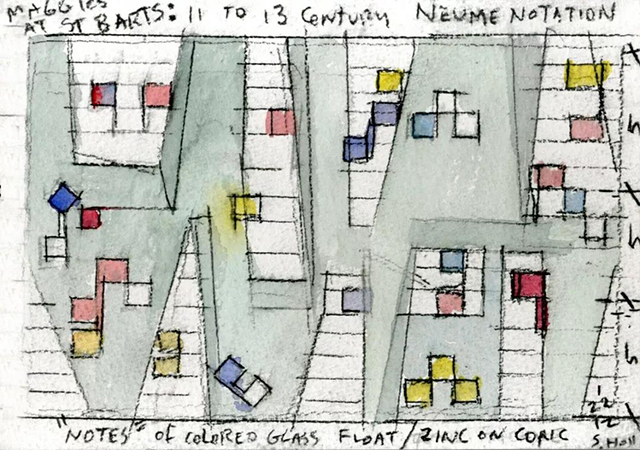 MAGGIES
AT ST BARTS: 11 TO 13 CENTURY NEUME NOTATION
"NOTES" OF COLORED GLASS FLOAT / ZINC ON CONC
1
22
12
S. Holl